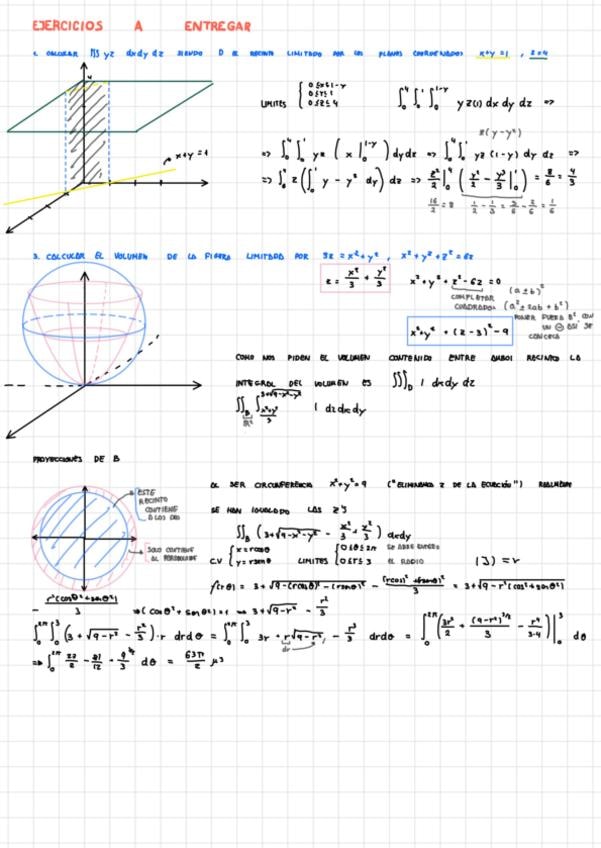 EJERCICIOS A ENTREGAR
1. CALCULAR ∭ yz dxdydz SIENDO D EL RECINTO LIMITADO POR LOS PLANOS COORDENADOS x+y=1, z=4
4
x+y=1
LIMITES { 0≤x≤1-y
0≤y≤1
0≤z≤4
∫₀⁴ ∫₀¹ ∫₀^(1-y) yz(1) dx dy dz =>
z(y-y²)
=> ∫₀⁴ ∫₀¹ yz (x |₀^(1-y)) dydz => ∫₀⁴ ∫₀¹ yz (1-y) dy dz =>
=> ∫₀⁴ z (∫₀¹ y - y² dy) dz => z²/2 |₀⁴ (y²/2 - y³/3 |₀¹) = 8/6 = 4/3
16/2 = 8 1/2 - 1/3 = 3/6 - 2/6 = 1/6
3. CALCULAR EL VOLUMEN DE LA FIGURA LIMITADA POR 3z = x²+y², x²+y²+z²=6z
z = x²/3 + y²/3
x²+y²+z²-6z=0
COMPLETAR CUADRADOS
(a±b)²
(a²±2ab+b²)
x²+y²+(z-3)²-9
COMO NOS PIDEN EL VOLUMEN CONTENIDO ENTRE AMBOS RECINTOS LA
INTEGRAL DEL VOLUMEN ES ∭_D 1 dxdydz
∬_B ∫_((x²+y²)/3)^(3+√(9-x²-y²)) 1 dzdxdy
PROYECCIONES DE B
ESTE RECINTO CONTIENE A LOS DOS
SOLO CONTIENE AL PARABOLOIDE
AL SER CIRCUNFERENCIA x²+y²=9 ("ELIMINAMOS Z DE LA ECUACIÓN") REALMENTE
SE HAN IGUALADO LAS Z'S
∬_B (3+√(9-x²-y²) - x²/3 + y²/3) dxdy
C.V { x=rcosθ
y=rsenθ
LIMITES { 0≤θ≤2π
0≤r≤3
EL RADIO
|J|=r
f(r,θ) = 3+√(9-(rcosθ)²-(rsenθ)²) - ((rcosθ)²+(rsenθ)²)/3 = 3+√(9-r²(cos²θ+senθ²))
- r²(cosθ²+senθ²)/3 => (cosθ²+senθ²)=1 => 3+√(9-r²) - r²/3
∫₀^(2π) ∫₀³ (3+√(9-r²) - r²/3)·r drdθ = ∫₀^(2π) ∫₀³ 3r + r√(9-r²) - r³/3 drdθ = ∫₀^(2π) (3r²/2 + (9-r²)^(3/2)/3 - r⁴/(3·4)) |₀³ dθ
=> ∫₀^(2π) 27/2 - 81/12 - 9^(3/2)/3 dθ = 63π/2 μ³